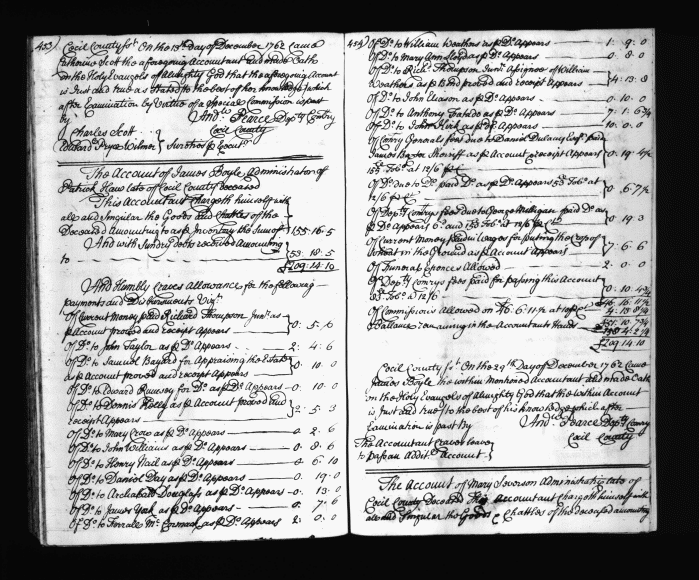 453) Cecil County ss. On the 13th day of December 1762 Came
Catherine Scott the aforegoing Accountant and made Oath
on the Holy Evangels of Almighty God that the aforegoing Account
is Just and true as Stated to the best of her knowledge which
after Examination by Virtue of a Special Commission is past
by And.w Pearce Dep.ty Com.ry
Cecil County
Charles Scott
Edward Pryce Wilmer } Sureties p Execut.x
The Account of James Boyle Administrator of
Patrick Haw late of Cecil County deceased
This Accountant Chargeth himself with
all and Singular the Goods and Chattles of the
Deceased Amounting to as p Inventory the Sum of } 155. 16. 5
And with Sundry debts received Amounting
to } 53. 18. 5
£209. 14. 10
And Humbly Craves Allowance for the following
payments and Disbursments Viz.t
Of Current Money paid Richard Thompson Jun.r as
p Account proved and Receipt Appears } 0. 5. 6
Of D.o to John Taylor as p D.o Appears 2. 4. 6
Of D.o to Samuel Bayard for Appraising the Estate
as p Account proved and receipt Appears } 0. 10. 0
Of D.o to Edward Rumsey for D.o as p D.o Appears 0. 10. 0
Of D.o to Dennis Kelly as p Account proved and
Receipt Appears } 2. 5. 3
Of D.o to Mary Crow as p D.o Appears 0. 2. 6
Of D.o to John Williams as p D.o Appears 0. 8. 6
Of D.o to Henry Nail as p D.o Appears 0. 6. 10
Of D.o to Daniel Day as p D.o Appears 0. 19. 0
Of D.o to Archabald Douglass as p D.o Appears 0. 13. 0
Of D.o to James York as p D.o Appears 0. 7. 6
Of D.o to Terrale M.c Cormack as p D.o Appears 2. 0. 0
454) Of D.o to William Weathers as p D.o Appears 1. 9. 0
Of D.o to Mary Ann as p D.o Appears 0. 8. 0
Of D.o to Rich.d Thompson Jun.r Assignee of William
Weathers as p Bond proved and receipt Appears } 4. 13. 8
Of D.o to John Eleason as p D.o Appears 0. 10. 0
Of D.o to Anthony as p D.o Appears 7. 1. 6¾
Of D.o to John Kirk as p D.o Appears 10. 0. 0
Of Com.ry Generals fees due to Daniel Dulany Esq.r paid
James Baxter Sheriff as p Account & receipt Appears } 0. 19. 4½
155 lb Tob.o at 12/6 p C
Of D.o due to D.o paid D.o as p D.o Appears 53 lb Tob.o at
12/6 p C } 0. 6. 7½
Of Dep.ty Com.rys fees due to George Milligan paid D.o as
p D.o Appears 6/ and Tob.o at 12/6 p C } 0. 19. 3
Of Current Money paid in Wages for putting the Crop of
Wheat in the Ground as p Account appears } 7. 6. 6
Of Funeral Expences Allowed 2. 0. 0
Of Dep.ty Com.rys fees paid for passing this Account
83 lb Tob.o @ 12/6 } 0. 10. 4½
£46. 16. 11½
Of Commissions Allowed on £46. 6. 11½ at 10 p C
Ballance remaining in the Accountants Hands
£209. 14. 10
Cecil County ss. On the 29th Day of December 1762 Came
James Boyle the within Mentioned Accountant and made Oath
on the Holy Evangels of Almighty God that the within Account
is Just and true to the best of his knowledge which after
Examination is past by And.w Pearce Dep.ty Com.ry
Cecil County
The Accountant craves leave
to pass an Addit.l Account
The Account of Mary Severson Administratrix late of
Cecil County Deceased This Accountant Chargeth himself with
all and Singular the Goods & Chattles of the deceased amounting